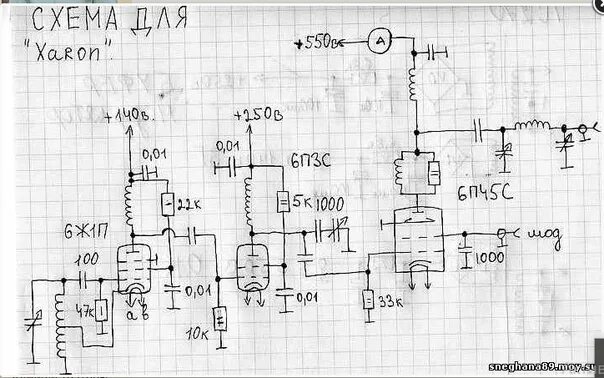 СХЕМА ДЛЯ
"Харон".
+550в
А
+140в
+250в
0,01
0,01
6П3С
22к
5к
1000
6П45С
6Ж1П
100
47к
а в
0,01
10к
0,01
33к
1000
мод
sneghana89.moy.su